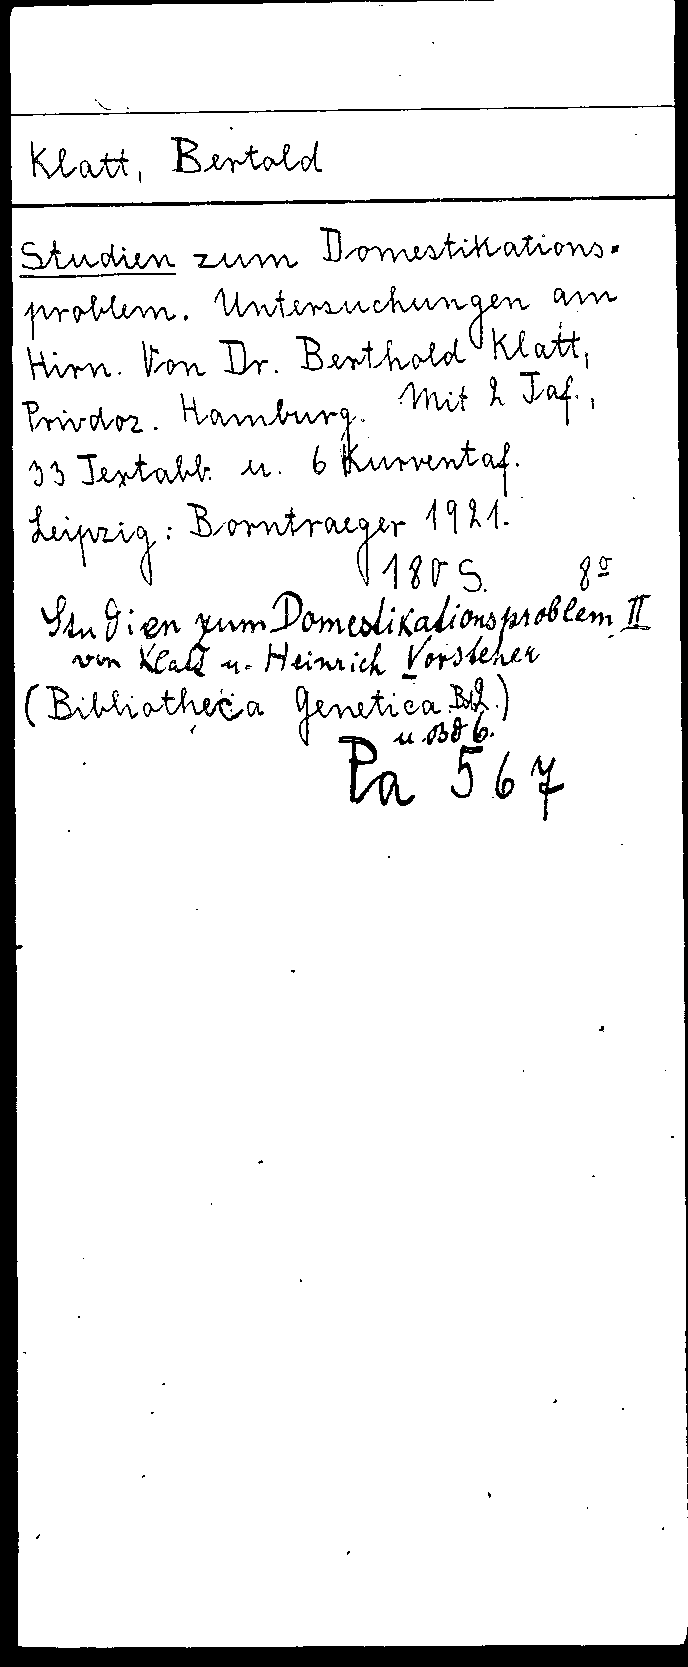 Klatt, Bertold
Studien zum Domestikations-
problem. Untersuchungen am
Hirn. Von Dr. Berthold Klatt,
Privdoz. Hamburg. Mit 2 Taf.,
33 Textabb. u. 6 Kurventaf.
Leipzig: Borntraeger 1921.
180 S. 8º
Studien zum Domestikationsproblem II
von Klatt u. Heinrich Vorsteher
(Bibliotheca Genetica Bd 2.)
u. Bd 6.
Pa 567